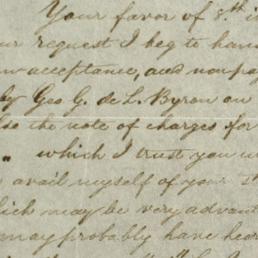 Your favor of 8th in
our request I beg to hand
acceptance, and nonpay
by Geo G. de L. Byron on
the note of charges for
" which I trust you w
avail myself of your
which may be very advant
may probably have hear